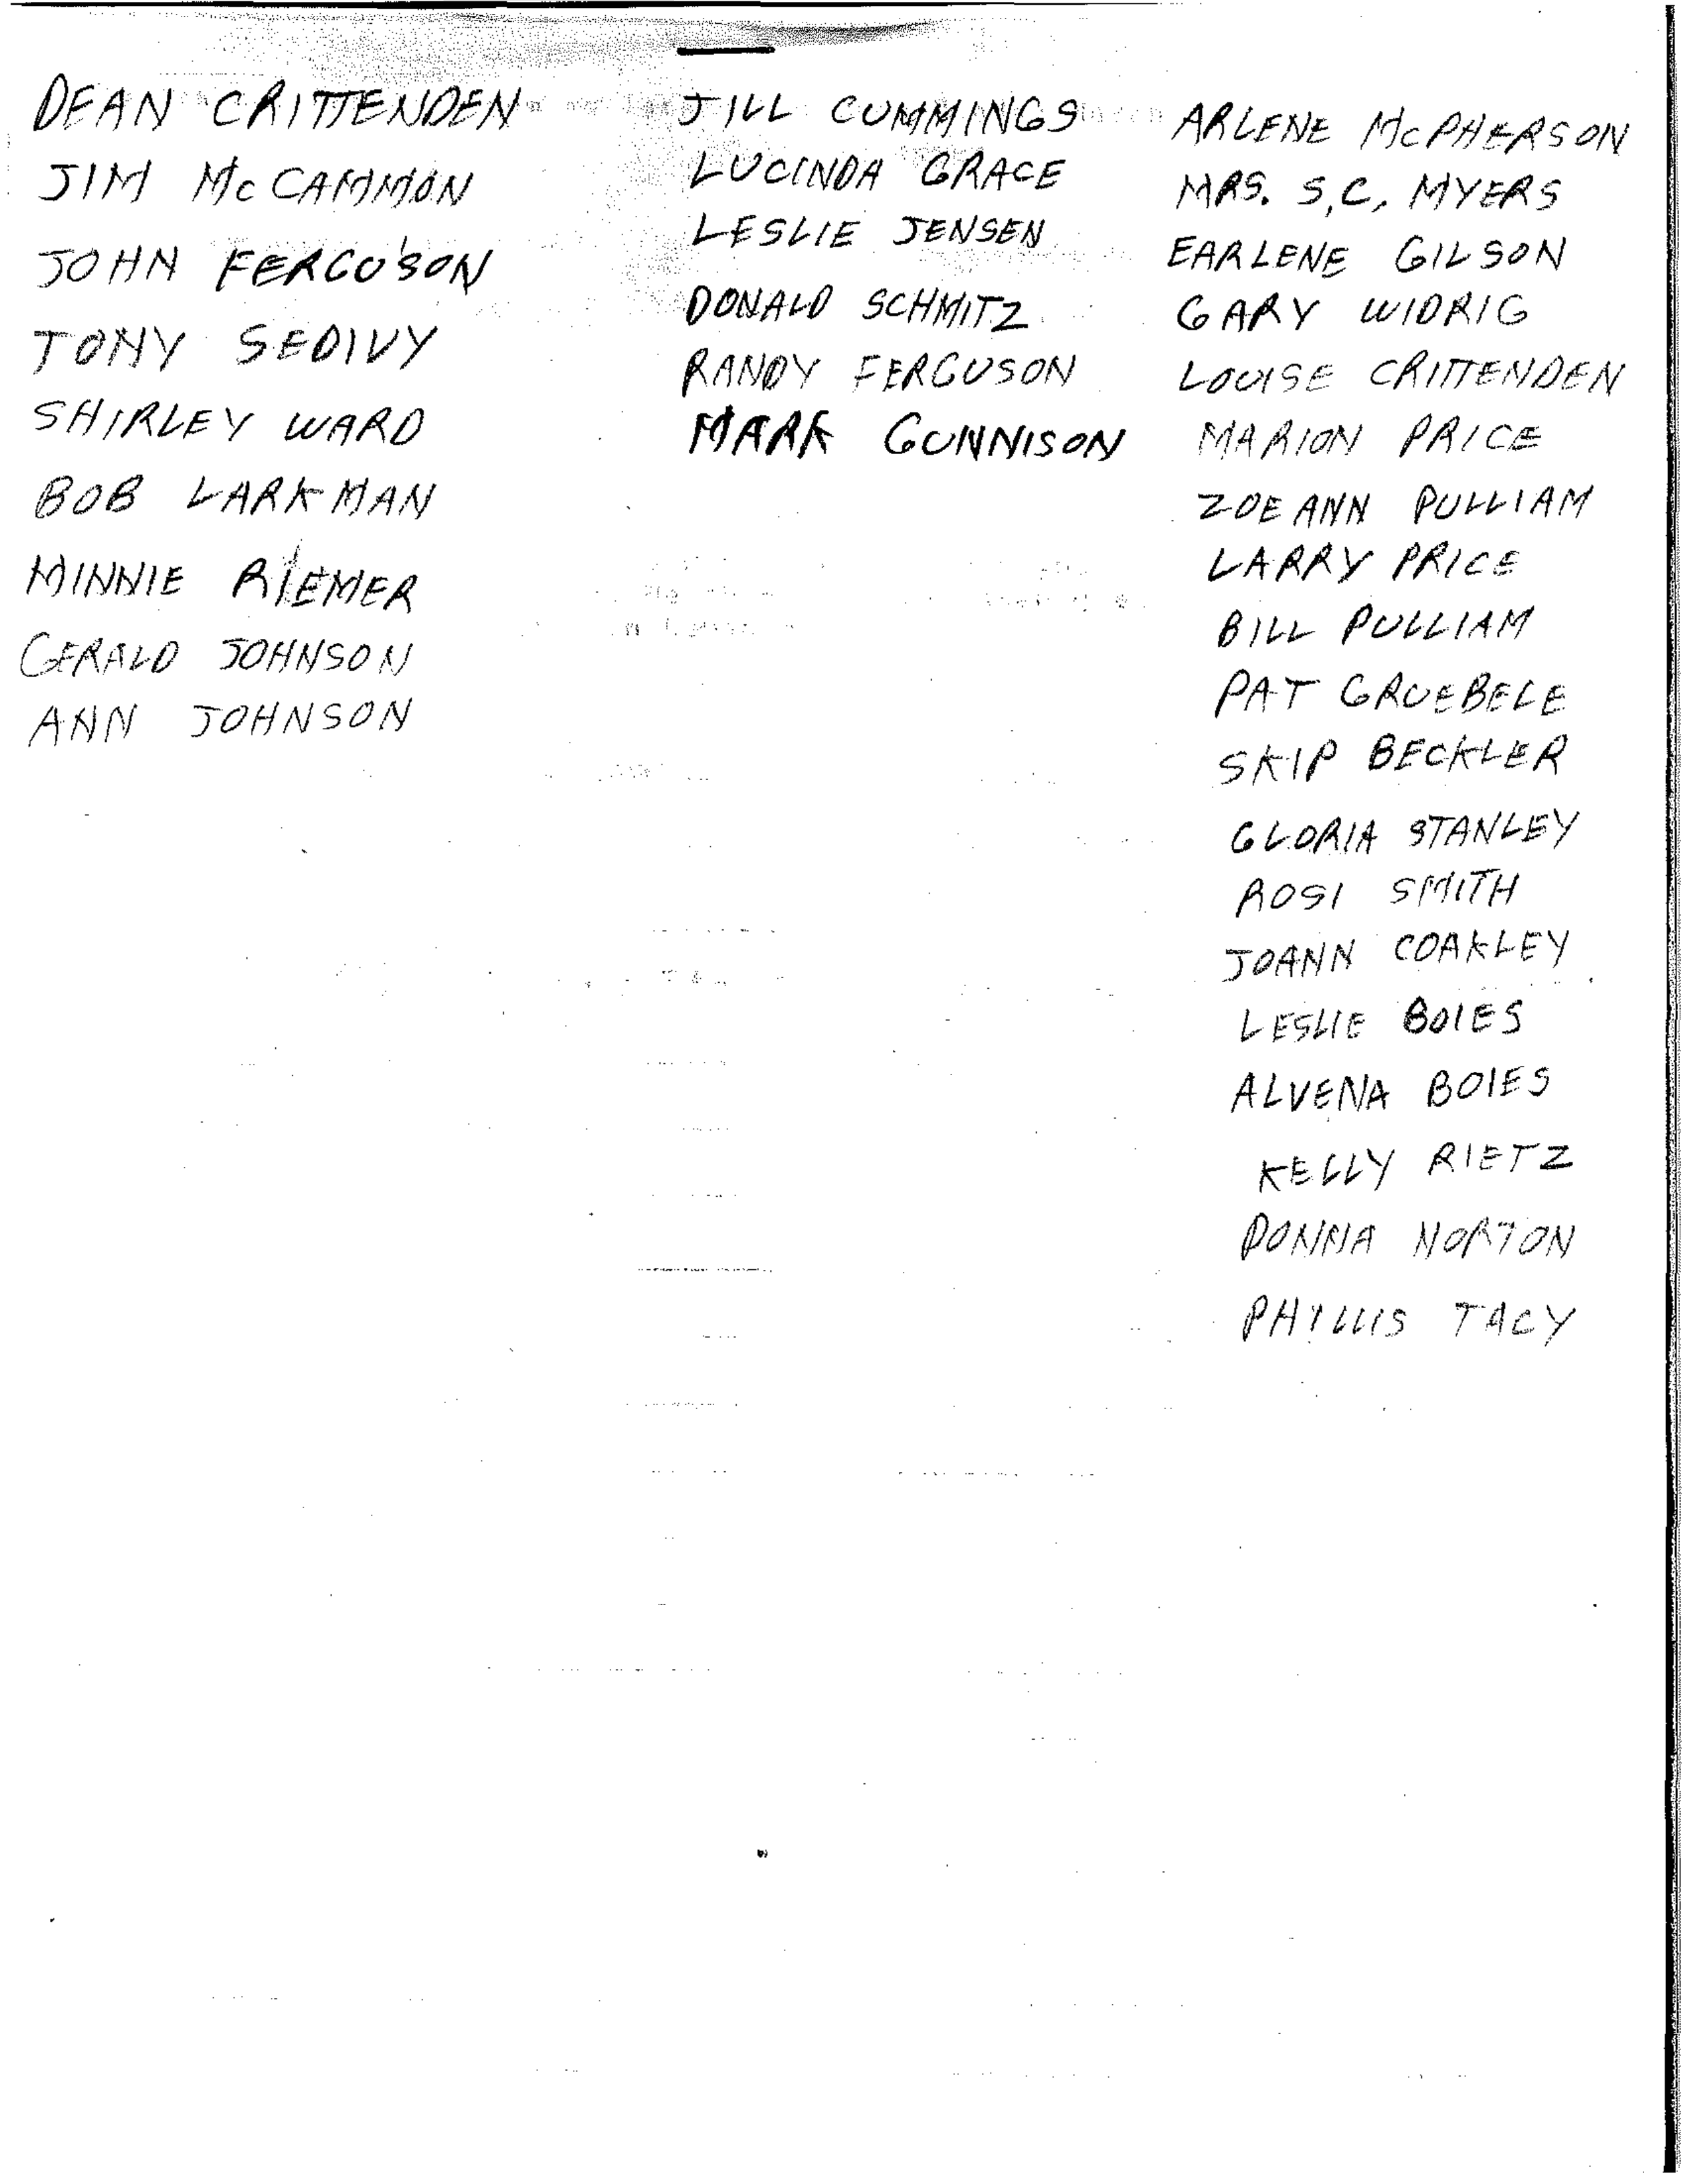 DEAN CRITTENDEN
JIM McCAMMON
JOHN FERGUSON
TONY SEDIVY
SHIRLEY WARD
BOB LARKMAN
MINNIE RIEMER
GERALD JOHNSON
ANN JOHNSON
JILL CUMMINGS
LUCINDA GRACE
LESLIE JENSEN
DONALD SCHMITZ
RANDY FERGUSON
MARK GUNNISON
ARLENE McPHERSON
MRS. S.C. MYERS
EARLENE GILSON
GARY WIDRIG
LOUISE CRITTENDEN
MARION PRICE
ZOE ANN PULLIAM
LARRY PRICE
BILL PULLIAM
PAT GRUEBELE
SKIP BECKLER
GLORIA STANLEY
ROSI SMITH
JOANN COAKLEY
LESLIE BOIES
ALVENA BOIES
KELLY RIETZ
DONNA NORTON
PHYLLIS TACY